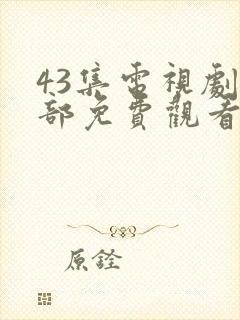 43集電視劇
部免費觀看
原銓